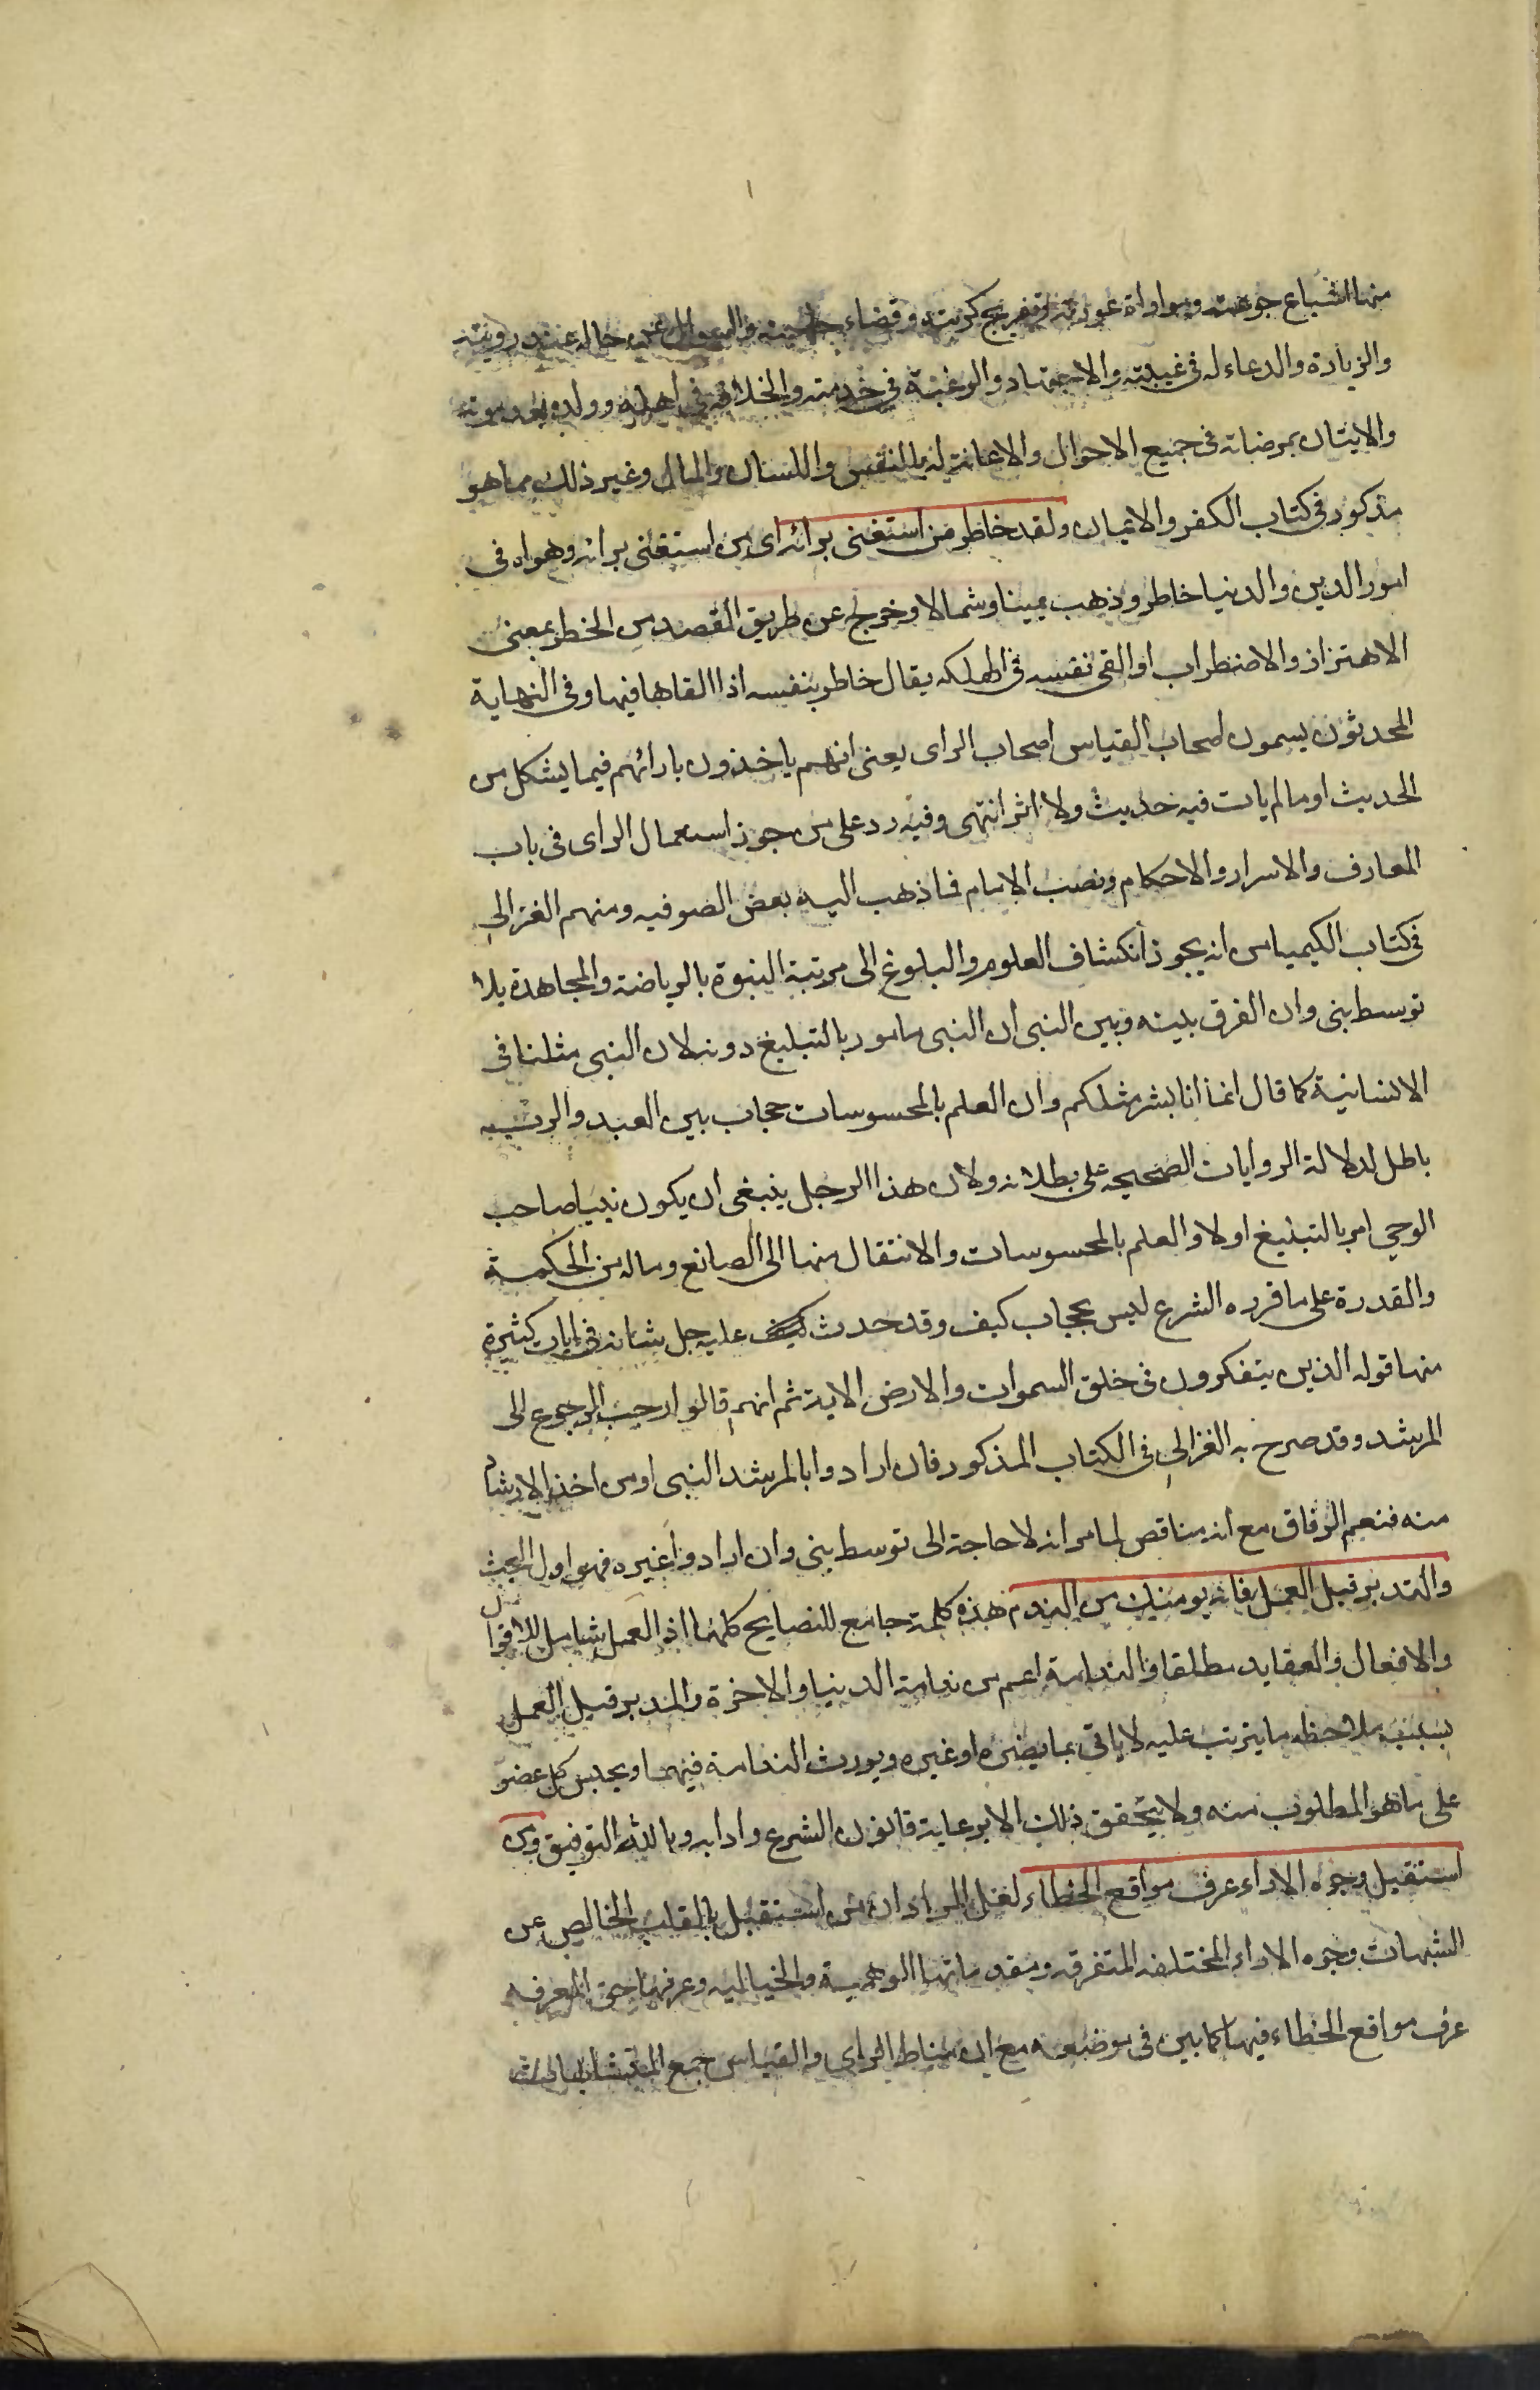 منها اشباع جوعته ومواراة عورته وتفريج كربته وقضاء حاجته والسوال عن حاله عند رويته
والزيارة والدعاء له فى غيبته والاجتهاد والرغبة فى خدمته والخلافة فى اهله وولده بعد موته
والايتان بمرضاته فى جميع الاحوال والاعانة له بالنفس واللسان والمال وغير ذلك مما هو
مذكور فى كتاب الكفر والايمان ولقد خاطر من استغنى برائه اى من استغنى برائه وهواه فى
امور الدين والدنيا خاطر وذهب يمينا وشمالا وخرج عن طريق القصد من الخطر بمعنى
الاهتزاز والاضطراب او القى نفسه فى الهلكه يقال خاطر بنفسه اذا القاها فيها وفى النهاية
المحدثون يسمون اصحاب القياس اصحاب الراى يعنى انهم ياخذون بارائهم فيما يشكل من
الحديث او ما لم يات فيه حديث ولا اثر انتهى وفيه رد على من جوز استعمال الراى فى باب
المعارف والاسرار والاحكام ونصب الامام فما ذهب اليه بعض الصوفيه ومنهم الغزالى
فى كتاب الكيميا من انه يجوز انكشاف العلوم والبلوغ الى مرتبة النبوة بالرياضة والمجاهدة بلا
توسط نبى وان الفرق بينه وبين النبى ان النبى مامور بالتبليغ دونه لان النبى مثلنا فى
الانسانية كما قال انما انا بشر مثلكم وان العلم بالمحسوسات حجاب بين العبد والرب
باطل لدلالة الروايات الصحيحه على بطلانه ولان هذا الرجل ينبغى ان يكون نبيا صاحب
الوحى امر بالتبليغ اولا والعلم بالمحسوسات والانتقال منها الى الصانع وماله من الحكمة
والقدرة على ما قرره الشرع ليس بحجاب كيف وقد حدث عليه جل شانه فى ايات كثيرة
منها قوله الذين يتفكرون فى خلق السموات والارض الاية ثم انهم قالوا وجب الرجوع الى
المرشد وقد صرح به الغزالى فى الكتاب المذكور فان ارادوا بالمرشد النبى او من اخذ الارشاد
منه فنعم الوفاق مع انه مناقض لما مر انه لا حاجة الى توسط نبى وان ارادوا غيره فهو اول البحث
والتدبر قبل العمل فانه يومنك من الندم هذه كلمة جامع للنصايح كلها اذ العمل شامل للاقوال
والافعال والعقايد مطلقا والندامة اعم من ندامة الدنيا والاخرة والتدبر قبل العمل
بسبب ملاحظه ما يترتب عليه لا ياتى بما يضره او غيره ويورث الندامة فيهما ويحبس كل عضو
على ما هو المطلوب منه ولا يتحقق ذلك الا برعاية قانون الشرع وادابه وبالله التوفيق ومن
استقبل وجوه الاراء عرف مواقع الخطاء لعل المراد ان من استقبل بالقلب الخالص عن
الشبهات وجوه الاراء المختلفه المتفرقه ومقدماتها الوهمية والخياليه وعرفها حق المعرفه
عرف مواقع الخطاء فيها كما بين فى موضعه مع ان مناط الراى والقياس جمع